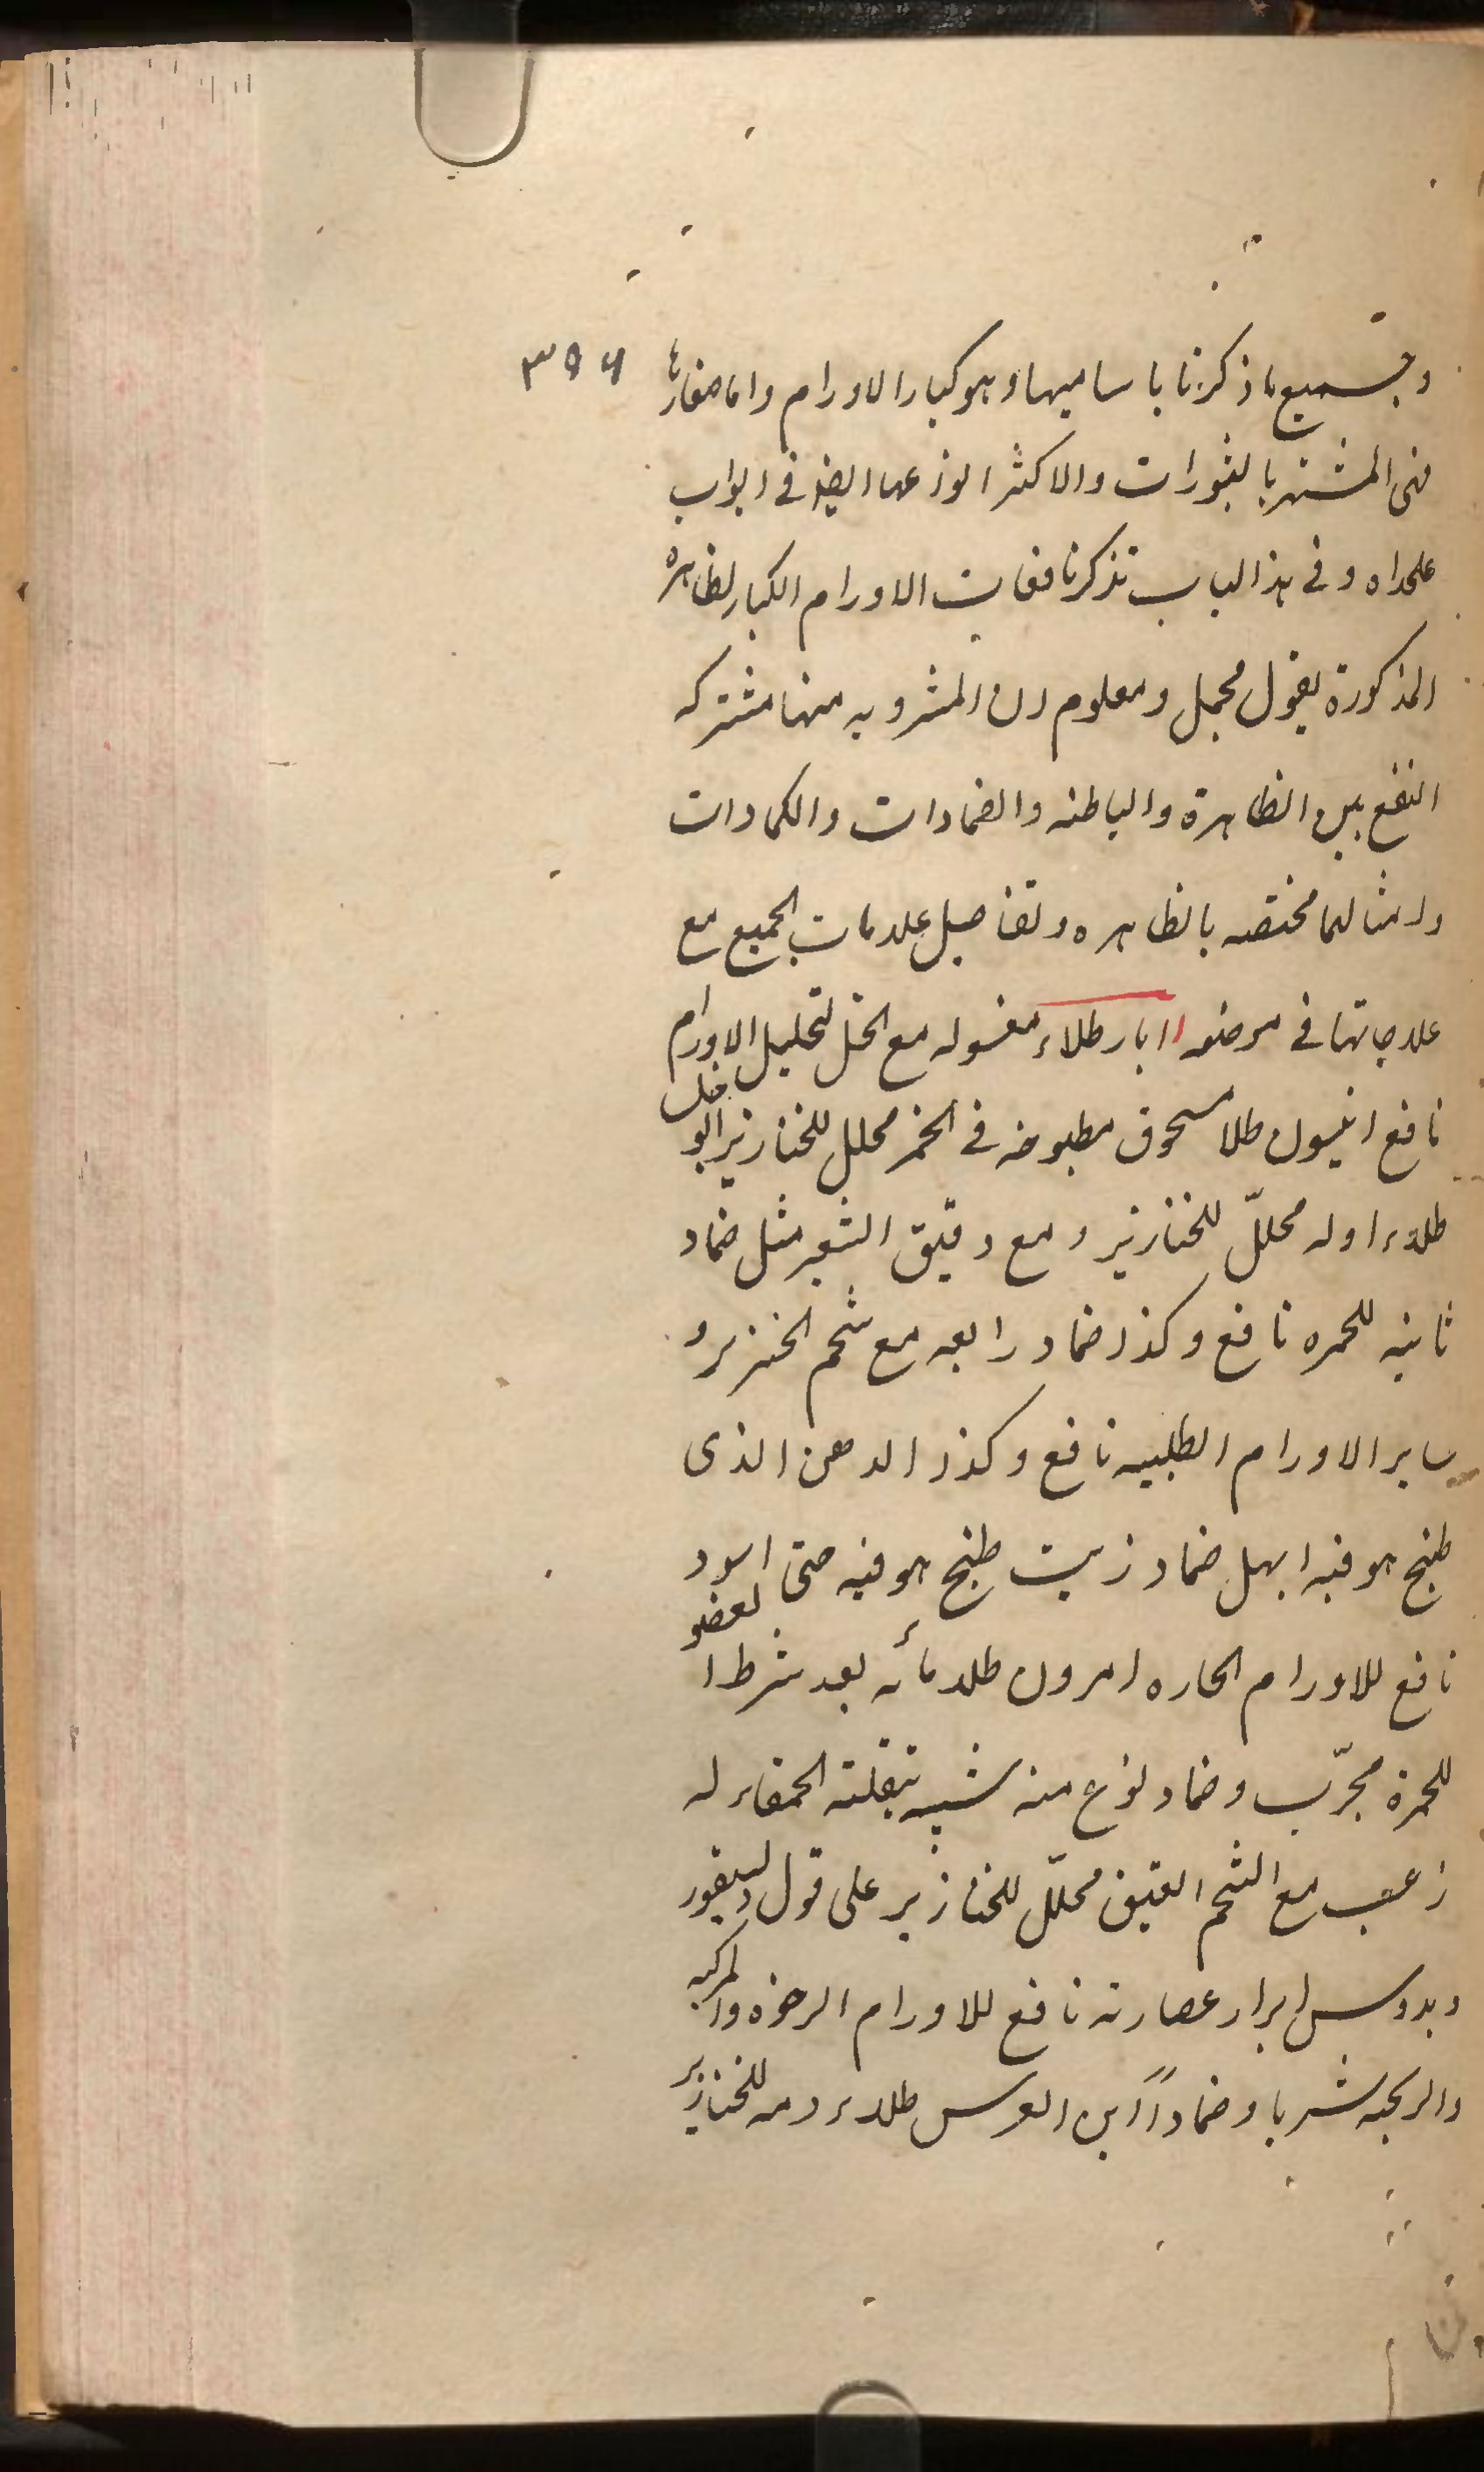 ۳۵۶
وجميع ما ذكرنا باساميها وهو كبار الاورام واما صغارها
فهى المشتهر بالبثورات والاكثر انواعها ايضا فى ابواب
علحداه وفى هذا الباب نذكر نافعات الاورام الكبار لظاهره
المذكورة بقول مجمل ومعلوم ان المشروبه منها مشتركه
النفع بين الظاهرة والباطنه والضمادات والكمادات
وامثالها مختصه بالظاهره وتفاصيل علامات الجميع مع
علاجاتها فى موضعه ابار طلاء مغسوله مع الخل لتحليل الاورام
نافع انيسون طلا مسحوق مطبوخه فى الخمر محلل للخنازير ابو خلسا
طلاء اوله محلّل للخنازير ومع دقيق الشعير مثل ضماد
ثانيه للحمره نافع وكذا ضماد رابعه مع شحم الخنزير و
ساير الاورام الطلبيه نافع وكذا الدهن الذى
طبخ هو فيه ابهل ضماد زيت طبخ هو فيه حتى اسود
نافع للاورام الحاره امرون طلا مائه بعد شرط العضو
للحمرة مجرّب وضماد نوع منه شبيه ببقلته الحمقاء له
زعب مع الشحم العتيق محلّل للخنازير على قول ديسقور
ويدوس ابرار عصارته نافع للاورام الرخوه والمركبه
والريحيه شربا وضماداً ابن العرس طلاء دمه للخنازير